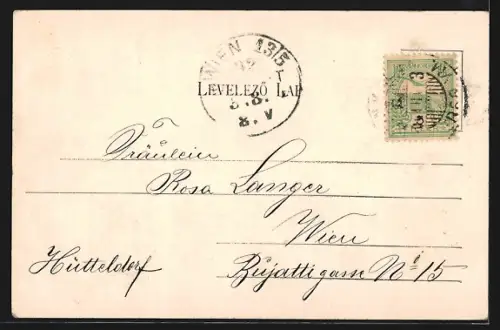 WIEN 13/5
LEVELEZŐ LAP
8. V
Fräulein
Rosa Langer
Wien
Hütteldorf Bujattigasse No 15